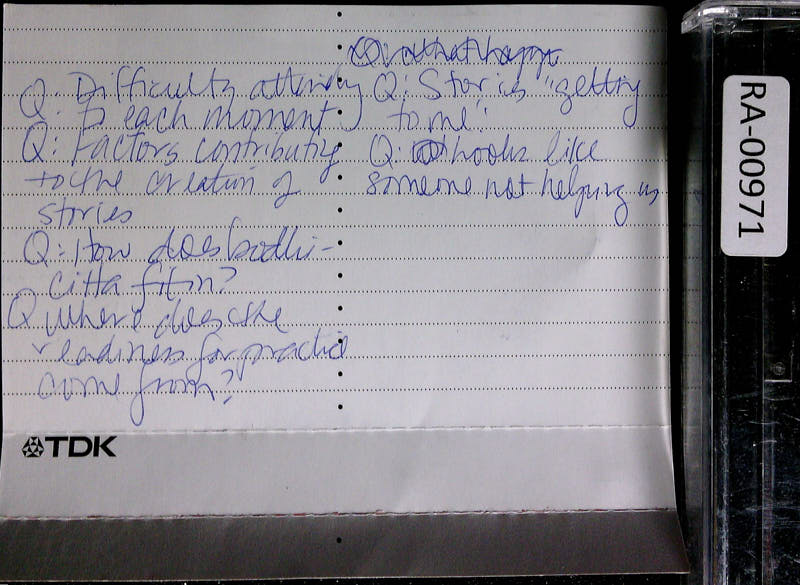 Q: Difficulty attending
to each moment
Q: Factors contributing
to the creation of
stories
Q: How does bodhi-
citta fit in?
Q where does the
readiness for practice
come from?
Q: Stories "getting
to me".
Q: hooks like
someone not helping us
TDK
RA-00971